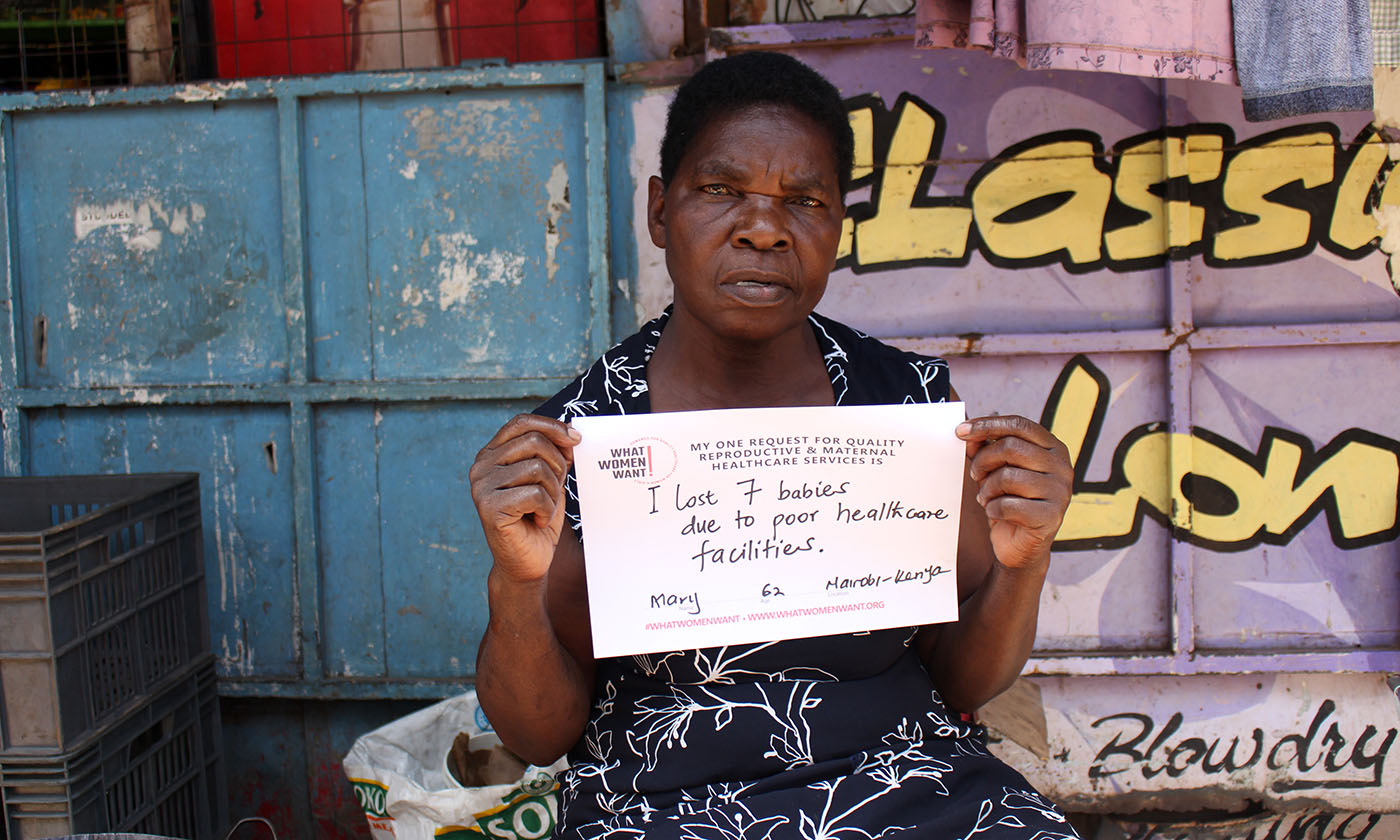 CLassy
Lon
Blowdry
WHAT
WOMEN
WANT!
MY ONE REQUEST FOR QUALITY
REPRODUCTIVE & MATERNAL
HEALTHCARE SERVICES IS
I lost 7 babies
due to poor healthcare
facilities.
Mary 62 Nairobi-Kenya
Name Age Location
#WHATWOMENWANT • WWW.WHATWOMENWANT.ORG
SO